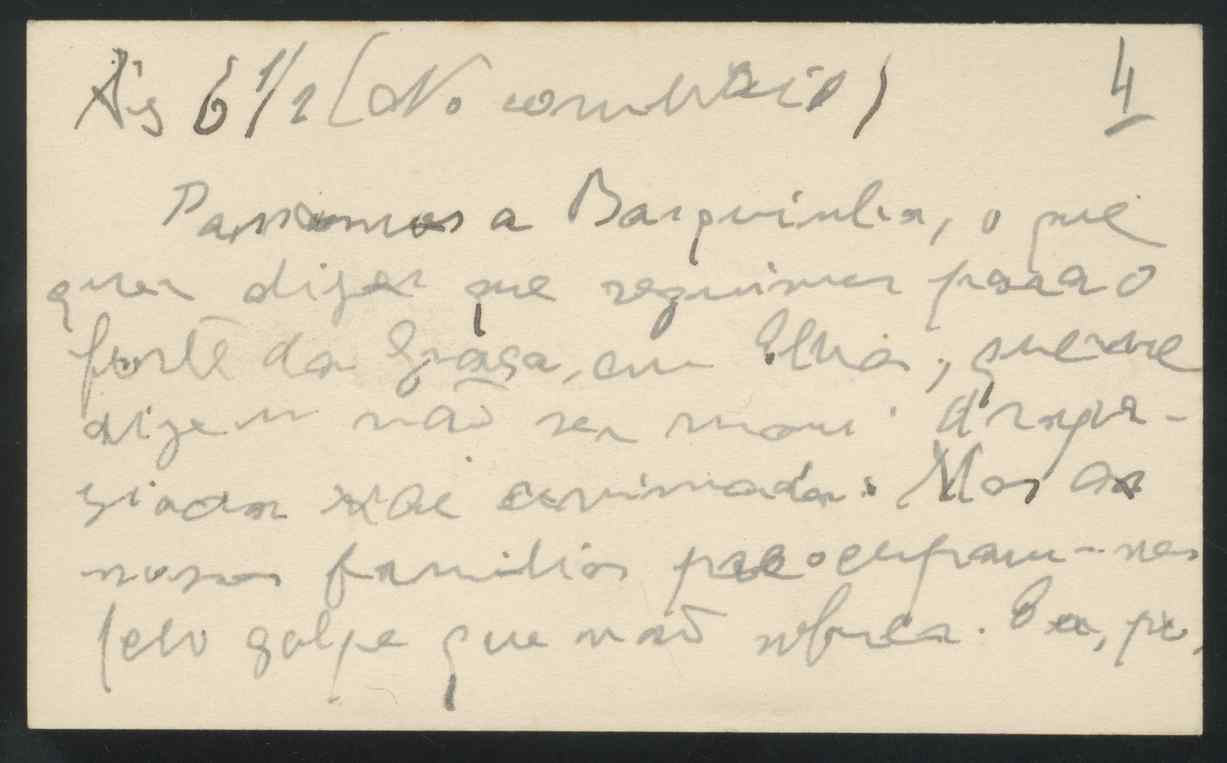 Ás 6 1/2 (No comboio) 4
Passamos a Barquinha, o que
quer dizer que seguimos para o
forte da Graça, em Elvas, que me
dizem não ser mau
Mas as
nossas familias preocupam-nos
pelo golpe que vão sofrer. Eu, po,